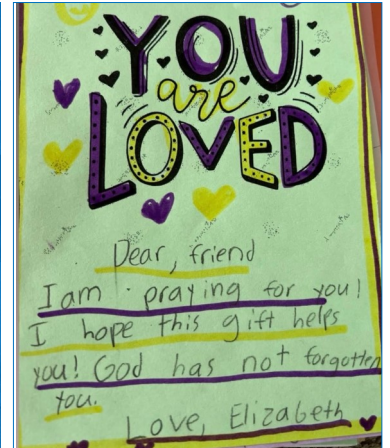 YOU
are
LOVED
Dear, friend
I am praying for you!
I hope this gift helps
you! God has not forgotten
you.
Love, Elizabeth